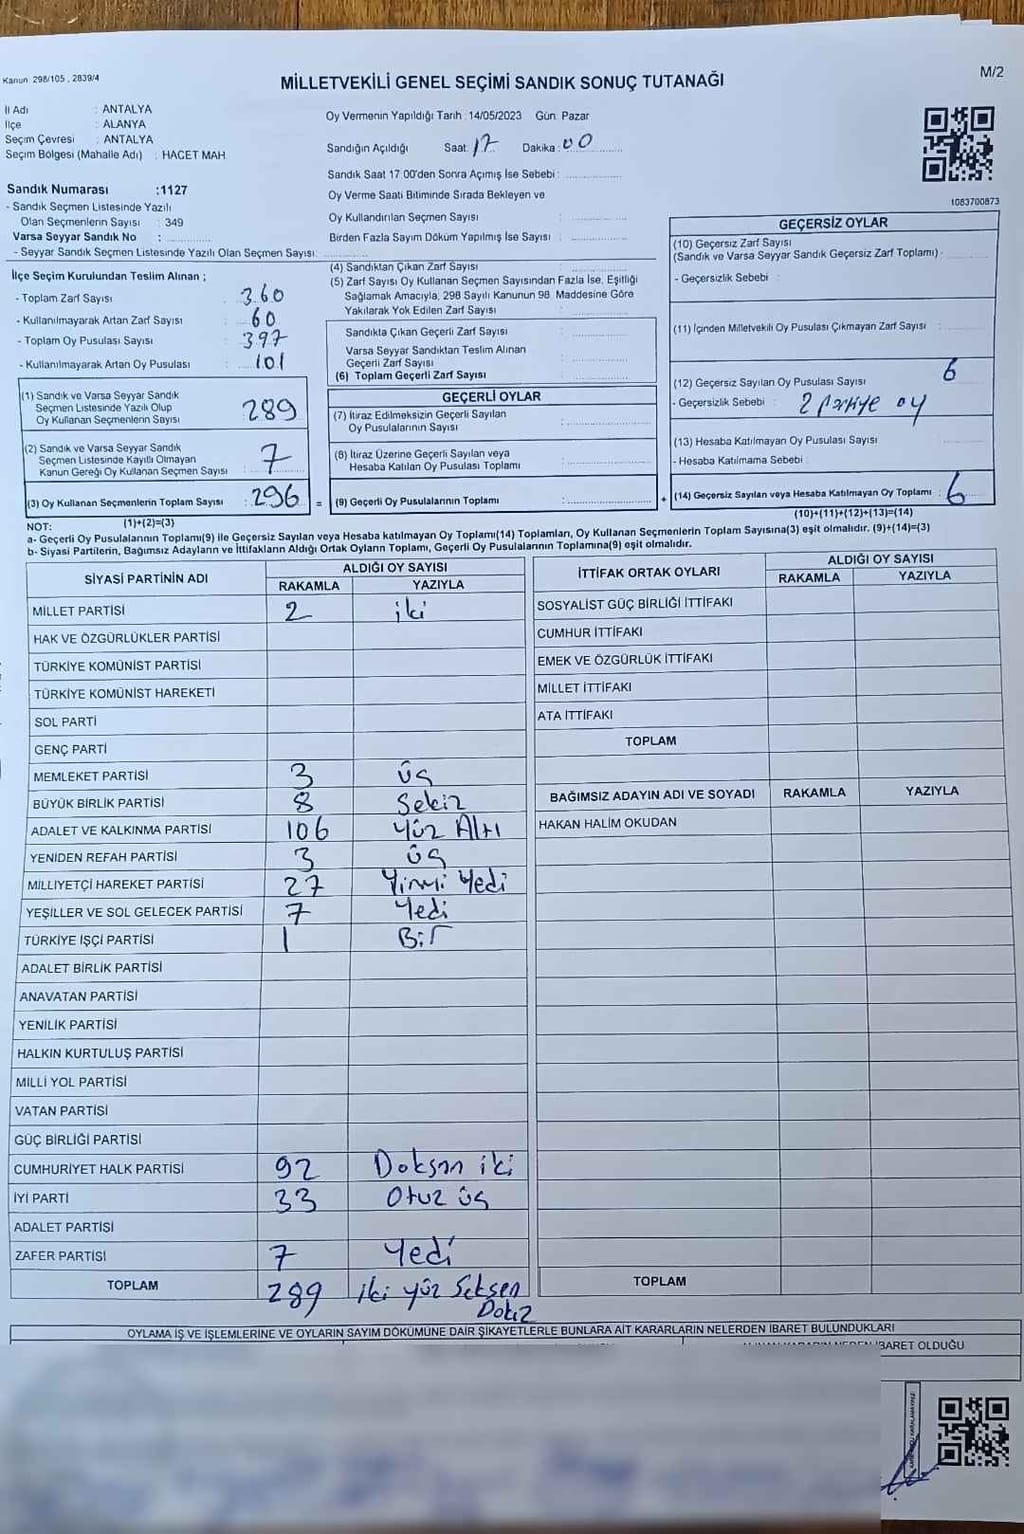 Kanun: 298/105 , 2839/4
MİLLETVEKİLİ GENEL SEÇİMİ SANDIK SONUÇ TUTANAĞI
M/2
İl Adı : ANTALYA
İlçe : ALANYA
Seçim Çevresi : ANTALYA
Seçim Bölgesi (Mahalle Adı) : HACET MAH
Sandık Numarası :1127
- Sandık Seçmen Listesinde Yazılı
Olan Seçmenlerin Sayısı : 349
Varsa Seyyar Sandık No :
- Seyyar Sandık Seçmen Listesinde Yazılı Olan Seçmen Sayısı:
Oy Vermenin Yapıldığı Tarih :14/05/2023 Gün: Pazar
Sandığın Açıldığı Saat: 17 Dakika: 00
Sandık Saat 17.00'den Sonra Açımış İse Sebebi :
Oy Verme Saati Bitiminde Sırada Bekleyen ve
Oy Kullandırılan Seçmen Sayısı :
Birden Fazla Sayım Döküm Yapılmış İse Sayısı :
1083700873
İlçe Seçim Kurulundan Teslim Alınan ;
- Toplam Zarf Sayısı : 360
- Kullanılmayarak Artan Zarf Sayısı : 60
- Toplam Oy Pusulası Sayısı : 397
- Kullanılmayarak Artan Oy Pusulası : 101
(1) Sandık ve Varsa Seyyar Sandık
Seçmen Listesinde Yazılı Olup
Oy Kullanan Seçmenlerin Sayısı : 289
(2) Sandık ve Varsa Seyyar Sandık
Seçmen Listesinde Kayıtlı Olmayan
Kanun Gereği Oy Kullanan Seçmen Sayısı : 7
(3) Oy Kullanan Seçmenlerin Toplam Sayısı : 296 =
(1)+(2)=(3)
(4) Sandıktan Çıkan Zarf Sayısı :
(5) Zarf Sayısı Oy Kullanan Seçmen Sayısından Fazla İse, Eşitliği
Sağlamak Amacıyla, 298 Sayılı Kanunun 98. Maddesine Göre
Yakılarak Yok Edilen Zarf Sayısı :
Sandıkta Çıkan Geçerli Zarf Sayısı :
Varsa Seyyar Sandıktan Teslim Alınan
Geçerli Zarf Sayısı :
(6) Toplam Geçerli Zarf Sayısı :
GEÇERLİ OYLAR
(7) İtiraz Edilmeksizin Geçerli Sayılan
Oy Pusulalarının Sayısı :
(8) İtiraz Üzerine Geçerli Sayılan veya
Hesaba Katılan Oy Pusulası Toplamı :
(9) Geçerli Oy Pusulalarının Toplamı : +
GEÇERSİZ OYLAR
(10) Geçersiz Zarf Sayısı
(Sandık ve Varsa Seyyar Sandık Geçersiz Zarf Toplamı) :
- Geçersizlik Sebebi :
(11) İçinden Milletvekili Oy Pusulası Çıkmayan Zarf Sayısı :
(12) Geçersiz Sayılan Oy Pusulası Sayısı : 6
- Geçersizlik Sebebi : 2 Partiye oy
(13) Hesaba Katılmayan Oy Pusulası Sayısı :
- Hesaba Katılmama Sebebi :
(14) Geçersiz Sayılan veya Hesaba Katılmayan Oy Toplamı : 6
(10)+(11)+(12)+(13)=(14)
NOT:
a- Geçerli Oy Pusulalarının Toplamı(9) ile Geçersiz Sayılan veya Hesaba katılmayan Oy Toplamı(14) Toplamları, Oy Kullanan Seçmenlerin Toplam Sayısına(3) eşit olmalıdır. (9)+(14)=(3)
b- Siyasi Partilerin, Bağımsız Adayların ve İttifakların Aldığı Ortak Oyların Toplamı, Geçerli Oy Pusulalarının Toplamına(9) eşit olmalıdır.
SİYASİ PARTİNİN ADI ALDIĞI OY SAYISI
RAKAMLA YAZIYLA
MİLLET PARTİSİ 2 iki
HAK VE ÖZGÜRLÜKLER PARTİSİ
TÜRKİYE KOMÜNİST PARTİSİ
TÜRKİYE KOMÜNİST HAREKETİ
SOL PARTİ
GENÇ PARTİ
MEMLEKET PARTİSİ 3 üç
BÜYÜK BİRLİK PARTİSİ 8 Sekiz
ADALET VE KALKINMA PARTİSİ 106 Yüz Altı
YENİDEN REFAH PARTİSİ 3 üç
MİLLİYETÇİ HAREKET PARTİSİ 27 Yirmi Yedi
YEŞİLLER VE SOL GELECEK PARTİSİ 7 Yedi
TÜRKİYE İŞÇİ PARTİSİ 1 Bir
ADALET BİRLİK PARTİSİ
ANAVATAN PARTİSİ
YENİLİK PARTİSİ
HALKIN KURTULUŞ PARTİSİ
MİLLİ YOL PARTİSİ
VATAN PARTİSİ
GÜÇ BİRLİĞİ PARTİSİ
CUMHURİYET HALK PARTİSİ 92 Doksan iki
İYİ PARTİ 33 Otuz üç
ADALET PARTİSİ
ZAFER PARTİSİ 7 Yedi
TOPLAM 289 iki yüz Seksen
Dokuz
İTTİFAK ORTAK OYLARI ALDIĞI OY SAYISI
RAKAMLA YAZIYLA
SOSYALİST GÜÇ BİRLİĞİ İTTİFAKI
CUMHUR İTTİFAKI
EMEK VE ÖZGÜRLÜK İTTİFAKI
MİLLET İTTİFAKI
ATA İTTİFAKI
TOPLAM
BAĞIMSIZ ADAYIN ADI VE SOYADI RAKAMLA YAZIYLA
HAKAN HALİM OKUDAN
TOPLAM
OYLAMA İŞ VE İŞLEMLERİNE VE OYLARIN SAYIM DÖKÜMÜNE DAİR ŞİKAYETLERLE BUNLARA AİT KARARLARIN NELERDEN İBARET BULUNDUKLARI
İBARET OLDUĞU